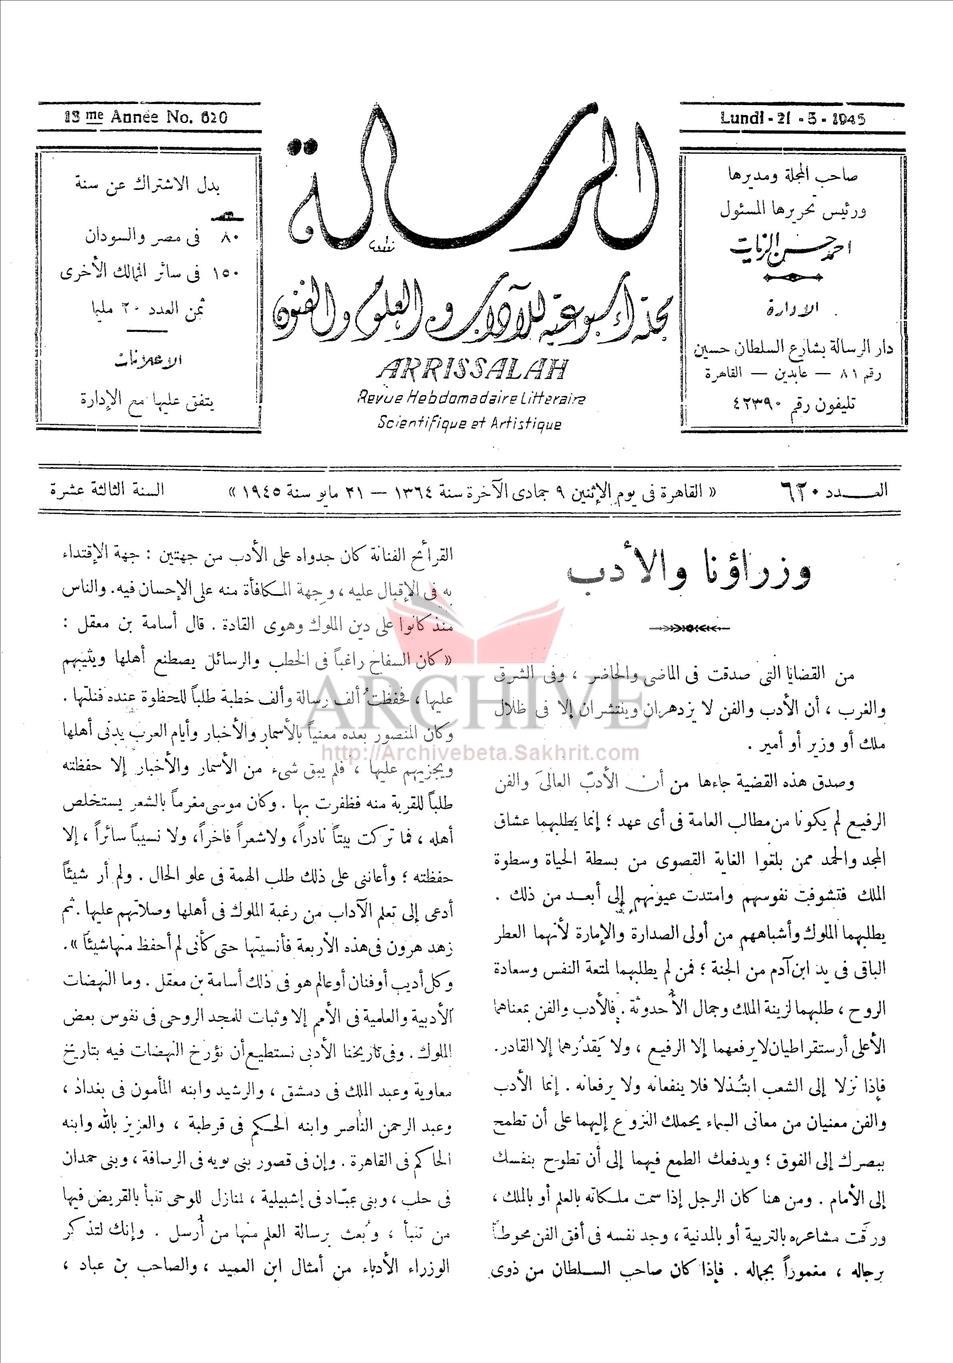 13 me Année No. 620
Lundi - 21 - 5 - 1945
صاحب المجلة ومديرها
ورئيس تحريرها المسئول
احمد حسن الزيات
الإدارة
دار الرسالة بشارع السلطان حسين
رقم ٨١ — عابدين — القاهرة
تليفون رقم ٤٢٣٩٠
الرسالة
مجلة أسبوعية للآداب والعلوم والفنون
ARRISSALAH
Revue Hebdomadaire Litteraire
Scientifique et Artistique
بدل الاشتراك عن سنة
٨٠ فى مصر والسودان
١٥٠ فى سائر الممالك الأخرى
ثمن العدد ٢٠ مليا
الاعلانات
يتفق عليها مع الإدارة
العـــدد ٦٢٠
« القاهرة فى يوم الإثنين ٩ جمادى الآخرة سنة ١٣٦٤ — ٢١ مايو سنة ١٩٤٥ »
السنة الثالثة عشرة
وزراؤنا والأدب
من القضايا التى صدقت فى الماضى والحاضر ، وفى الشرق
والغرب ، أن الأدب والفن لا يزدهران وينتشران إلا فى ظلال
ملك أو وزير أو أمير .
وصدق هذه القضية جاءها من أن الأدب العالى والفن
الرفيع لم يكونا من مطالب العامة فى أى عهد ؛ إنما يطلبهما عشاق
المجد والحمد ممن بلغوا الغاية القصوى من بسطة الحياة وسطوة
الملك فتشوفت نفوسهم وامتدت عيونهم إلى أبعـد من ذلك .
يطلبهما الملوك وأشباههم من أولى الصدارة والإمارة لأنهما العطر
الباقى فى يد ابن آدم من الجنة ؛ فمن لم يطلبهما لمتعة النفس وسعادة
الروح ، طلبهما لزينة الملك وجمال الأحدوثة . فالأدب والفن بمعناهما
الأعلى أرستقراطيان لا يرفعهما إلا الرفيع ، ولا يقدّرهما إلا القادر.
فإذا نزلا إلى الشعب ابتُـذلا فلا ينفعانه ولا يرفعانه . إنما الأدب
والفن معنيان من معانى السماء يحملك النزوع إليهما على أن تطمح
ببصرك إلى الفوق ؛ ويدفعك الطمع فيهما إلى أن تطوح بنفسك
إلى الأمام . ومن هنا كان الرجل إذا سمت ملـكاته بالعلم أو بالملك ،
ورقت مشاعره بالتربية أو بالمدنية ، وجد نفسه فى أفق الفن محوطاً
برجاله ، مغموراً بجماله . فإذا كان صاحب السـلطان من ذوى
القرائح الفنانة كان جدواه على الأدب من جهتين : جهة الإقتداء
به فى الإقبال عليه ، وجهة المـكافأة منه على الإحسان فيه. والناس
منذ كانوا على دين الملوك وهوى القادة . قال أسامة بن معقل :
« كان السفاح راغباً فى الخطب والرسائل يصطنع أهلها ويثيبهم
عليها ، فحفظتُ ألف رسالة وألف خطبة طلباً للحظوة عنده فنلتها .
وكان المنصور بعده معنياً بالأسمار والأخبار وأيام العرب يدنى أهلها
ويجزيهم عليها ، فلم يبق شىء من الأسمار والأخبار إلا حفظته
طلباً للقربة منه فظفرت بها . وكان موسى مغرماً بالشعر يستخلص
أهله ، فما تركت بيتاً نادراً، ولا شعراً فاخراً، ولا نسيباً سائراً ، إلا
حفظته ؛ وأعاننى على ذلك طلب الهمة فى علو الحال . ولم أر شيئاً
أدعى إلى تعلم الآداب من رغبة الملوك فى أهلها وصلاتهم عليها . ثم
زهد هرون فى هذه الأربعة فأنسيتها حتى كأنى لم أحفظ منها شيئاً ».
وكل أديب أو فنان أو عالم هو فى ذلك أسامة بن معقل . وما النهضات
الأدبية والعلمية فى الأمم إلا وثبات للمجد الروحى فى نفوس بعض
الملوك . وفى تاريخنا الأدبى نستطيع أن نؤرخ النهضات فيه بتاريخ
معاوية وعبد الملك فى دمشق ، والرشيد وابنه المأمون فى بغداد ،
وعبد الرحمن الناصر وابنه الحـكم فى قرطبة ، والعزيز بالله وابنه
الحاكم فى القاهرة . وإن فى قصور بنى بويه فى الرصافة ، وبنى حمدان
فى حلب ، وبنى عبـّاد فى إشبيلية ، لمنازل للوحى تنبأ بالقريض فيها
من تنبأ ، وبُعث برسالة العلم منها من أُرسل . وإنك لتذكر
الوزراء الأدباء من أمثال ابن العميد ، والصاحب بن عباد ،
ARCHIVE
http://Archivebeta.Sakhrit.com